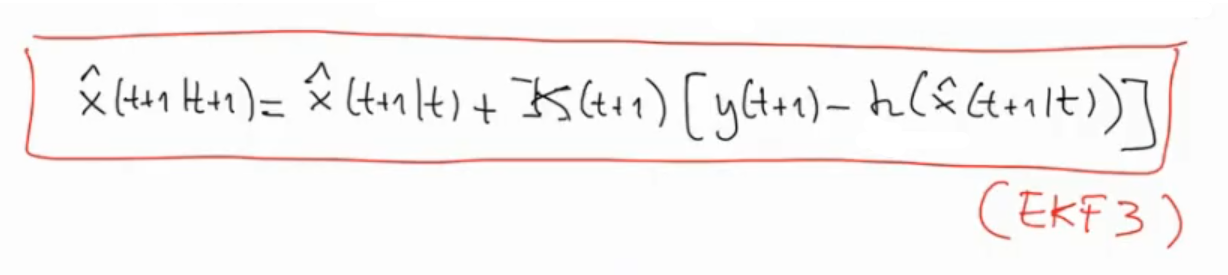 x̂(t+1|t+1) = x̂(t+1|t) + K(t+1) [y(t+1) - h(x̂(t+1|t))]
(EKF3)